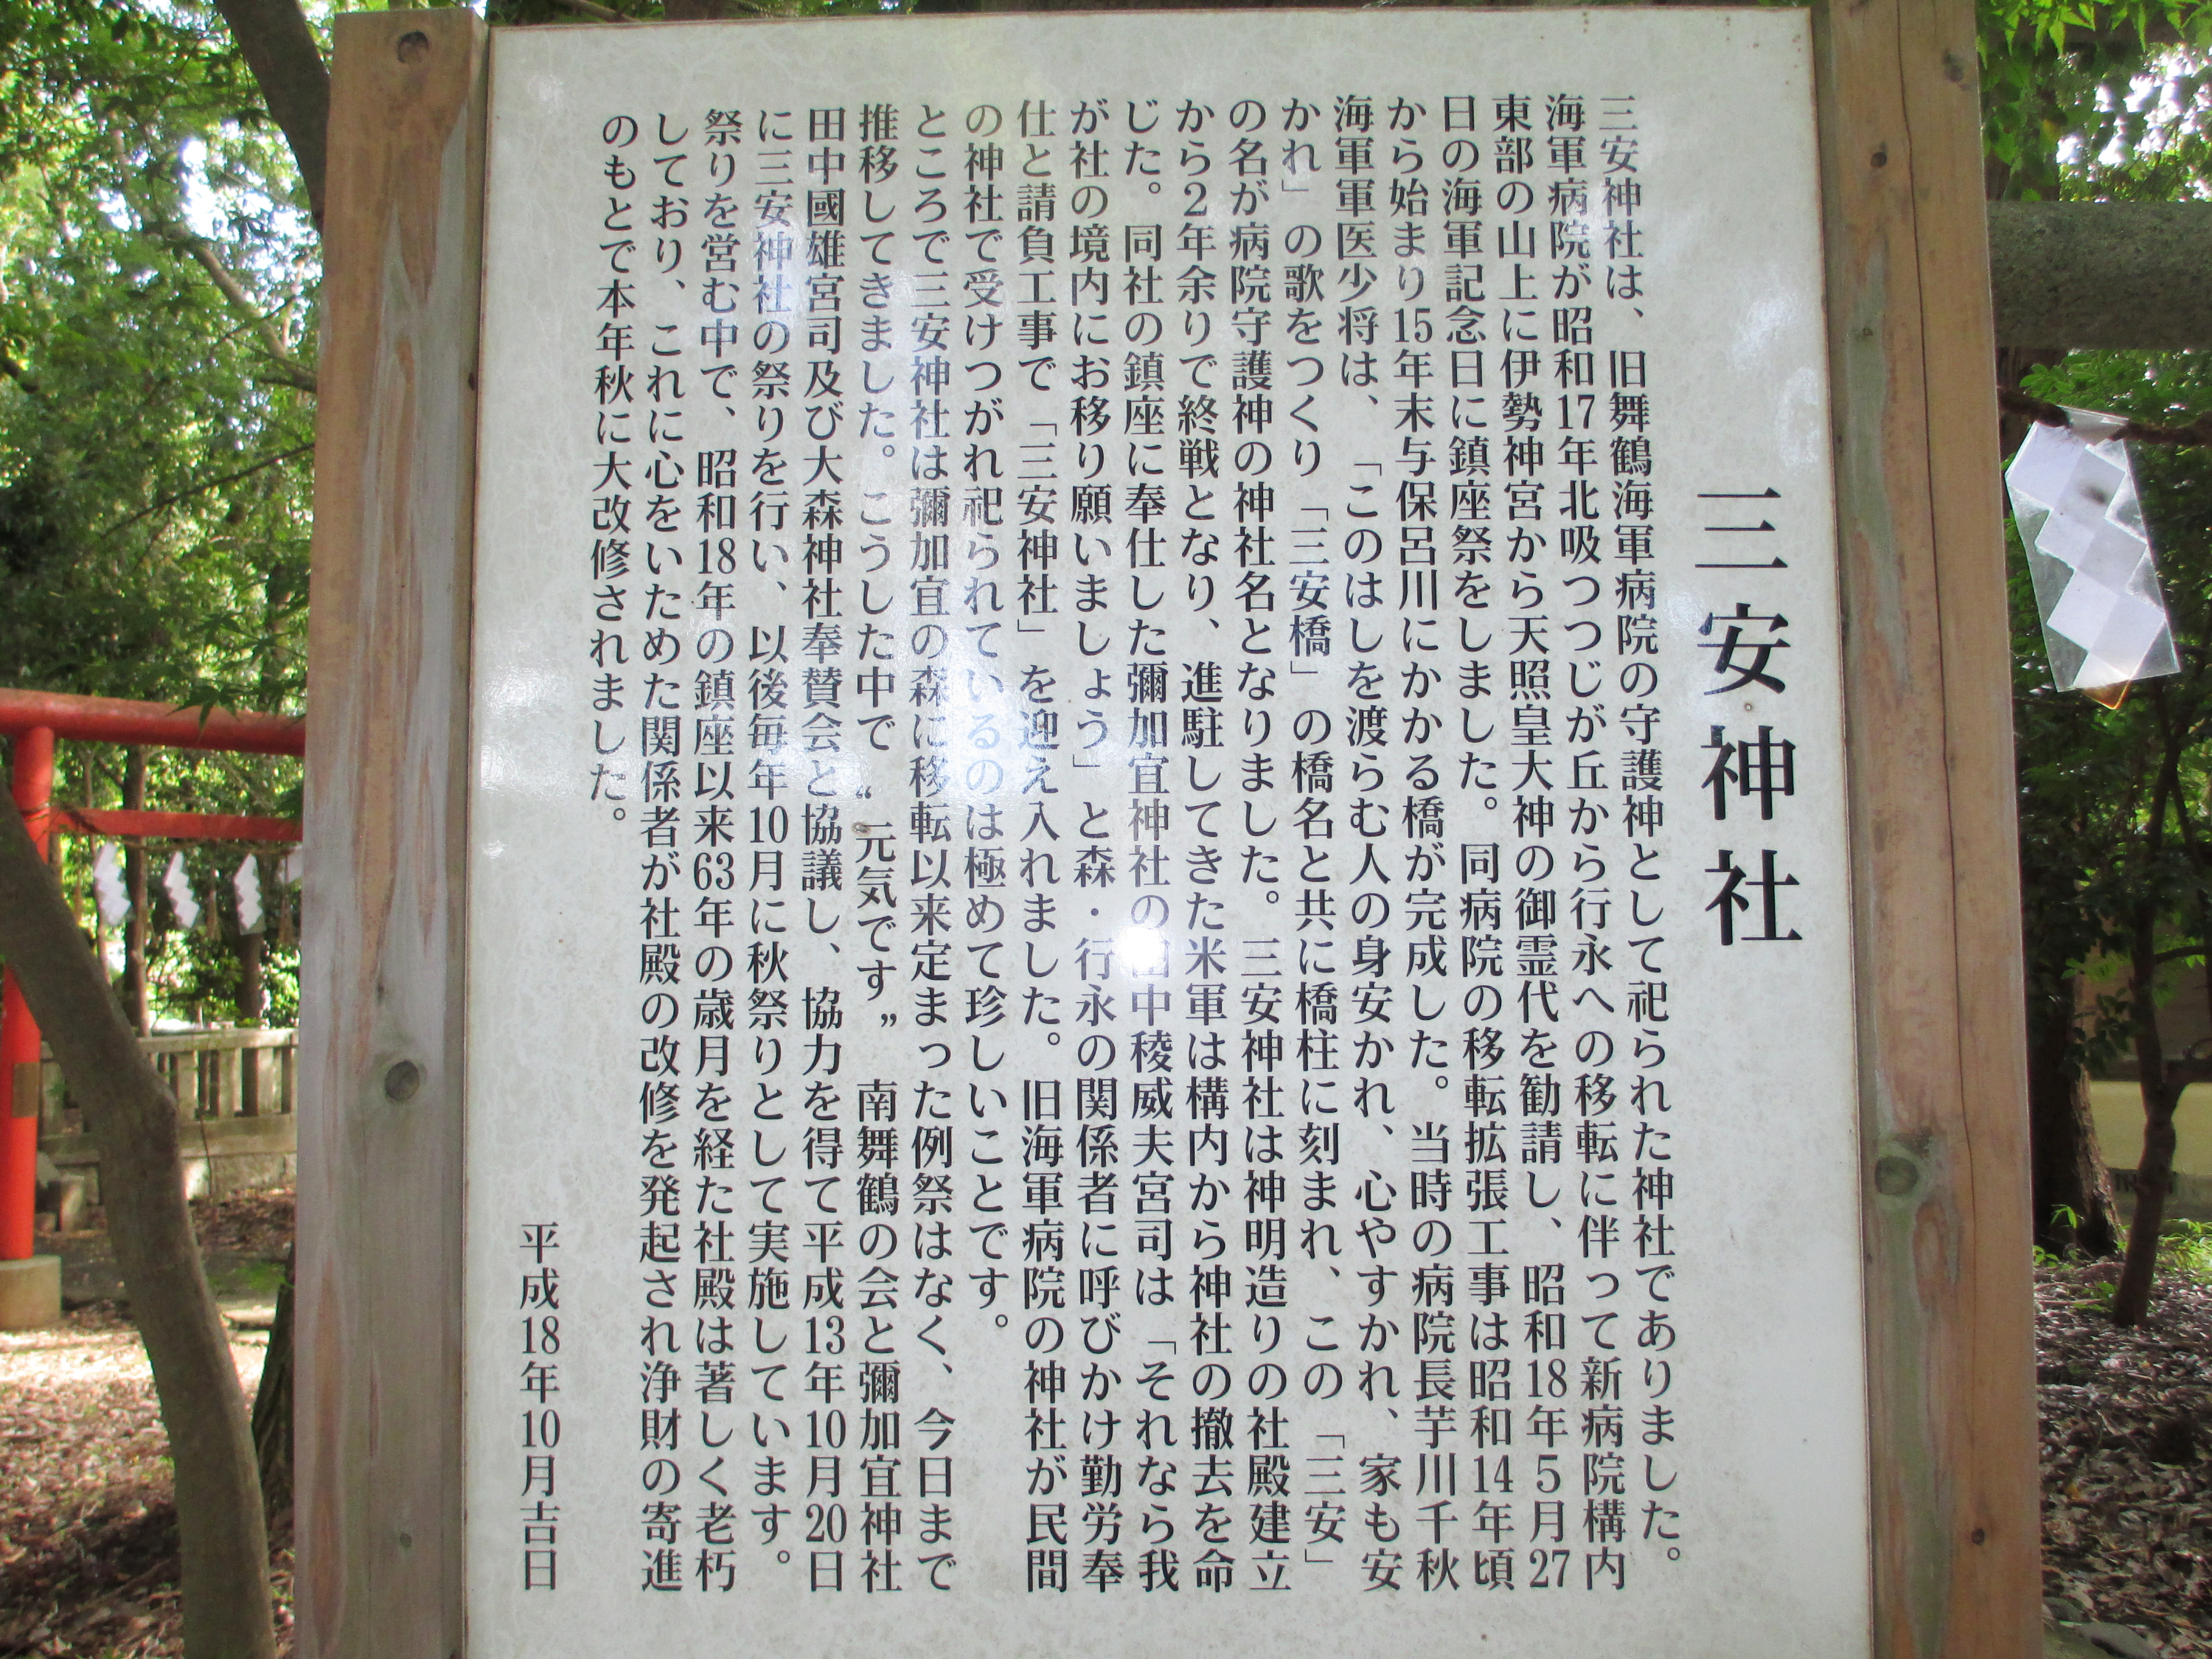 三安神社
三安神社は、旧舞鶴海軍病院の守護神として祀られた神社でありました。
海軍病院が昭和17年北吸つつじが丘から行永への移転に伴って新病院構内
東部の山上に伊勢神宮から天照皇大神の御霊代を勧請し、昭和18年5月27
日の海軍記念日に鎮座祭をしました。同病院の移転拡張工事は昭和14年頃
から始まり15年末与保呂川にかかる橋が完成した。当時の病院長芋川千秋
海軍軍医少将は、「このはしを渡らむ人の身安かれ、心やすかれ、家も安
かれ」の歌をつくり「三安橋」の橋名と共に橋柱に刻まれ、この「三安」
の名が病院守護神の神社名となりました。三安神社は神明造りの社殿建立
から2年余りで終戦となり、進駐してきた米軍は構内から神社の撤去を命
じた。同社の鎮座に奉仕した彌加宜神社の田中稜威夫宮司は「それなら我
が社の境内にお移り願いましょう」と森・行永の関係者に呼びかけ勤労奉
仕と請負工事で「三安神社」を迎え入れました。旧海軍病院の神社が民間
の神社で受けつがれ祀られているのは極めて珍しいことです。
ところで三安神社は彌加宜の森に移転以来定まった例祭はなく、今日まで
推移してきました。こうした中で〝元気です〟南舞鶴の会と彌加宜神社
田中國雄宮司及び大森神社奉賛会と協議し、協力を得て平成13年10月20日
に三安神社の祭りを行い、以後毎年10月に秋祭りとして実施しています。
祭りを営む中で、昭和18年の鎮座以来63年の歳月を経た社殿は著しく老朽
しており、これに心をいためた関係者が社殿の改修を発起され浄財の寄進
のもとで本年秋に大改修されました。
平成18年10月吉日